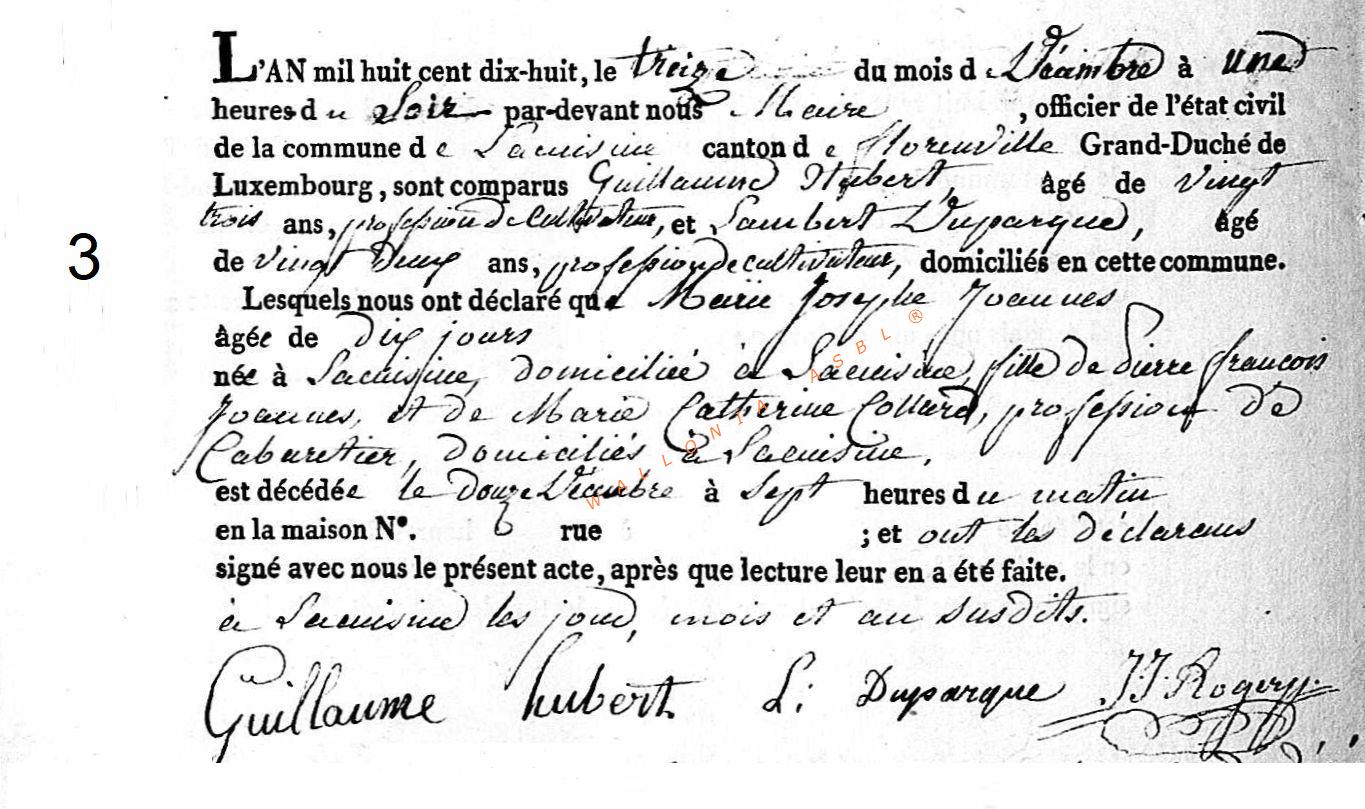 L'AN mil huit cent dix-huit, le treize du mois de Décembre à une
heures du Soir par-devant nous Maire, officier de l'état civil
de la commune de Lacuisine canton de florenville Grand-Duché de
Luxembourg, sont comparus Guillaume Hubert, âgé de vingt
trois ans, profession de Cultivateur, et Lambert Duparque, âgé
3
de vingt Deux ans, profession de cultivateur, domiciliés en cette commune.
Lesquels nous ont déclaré que Marie Josephe Joannes
âgée de Dix jours
née à Lacuisine, domiciliée à Lacuisine, fille de Pierre françois
Joannes, et de Marie Catherine Collard, profession de
Cabaretier, domiciliés à Lacuisine,
est décédée le douze Décembre à Sept heures du matin
en la maison N°. 6 rue ; et ont les déclarans
signé avec nous le présent acte, après que lecture leur en a été faite.
à Lacuisine les jour, mois et an susdits.
Guillaume hubert L: Duparque JJ Rogery
WALLONIA ASBL ®